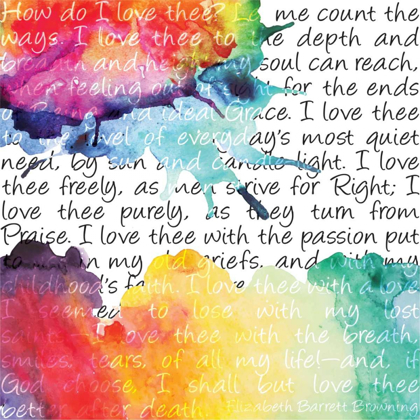 How do I love thee? Let me count the
ways. I love thee to the depth and
breadth and height my soul can reach,
when feeling out of sight for the ends
of Being and ideal Grace. I love thee
to the level of everyday's most quiet
need, by sun and candle-light. I love
thee freely, as men strive for Right; I
love thee purely, as they turn from
Praise. I love thee with the passion put
to use in my old griefs, and with my
childhood's faith. I love thee with a love
I seemed to lose with my lost
saints. I love thee with the breath,
smiles, tears, of all my life!—and, if
God choose, I shall but love thee
better after death. Elizabeth Barrett Browning